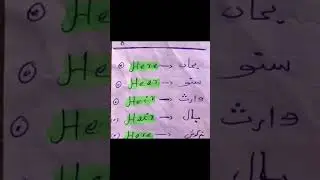 Here → یہاں
Hear → سنو
Heir → وارث
Hair → بال
Hare → خرگوش
بال